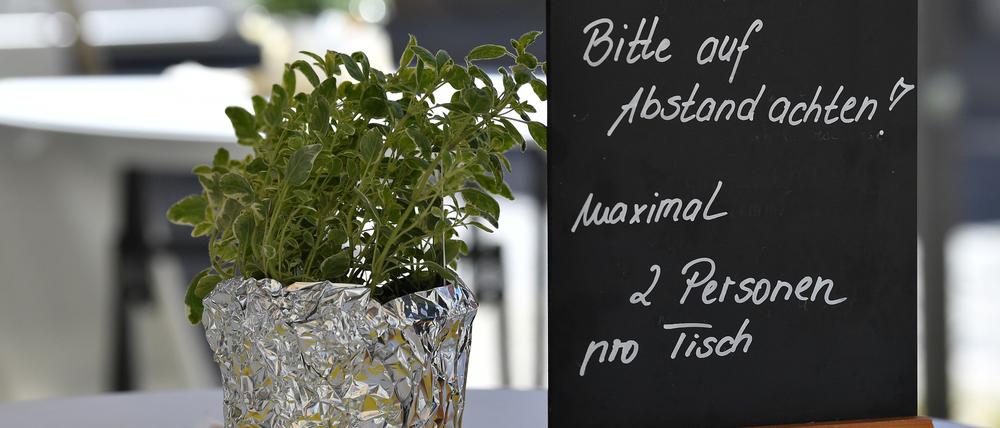 Bitte auf
Abstand achten!
Maximal
2 Personen
pro Tisch